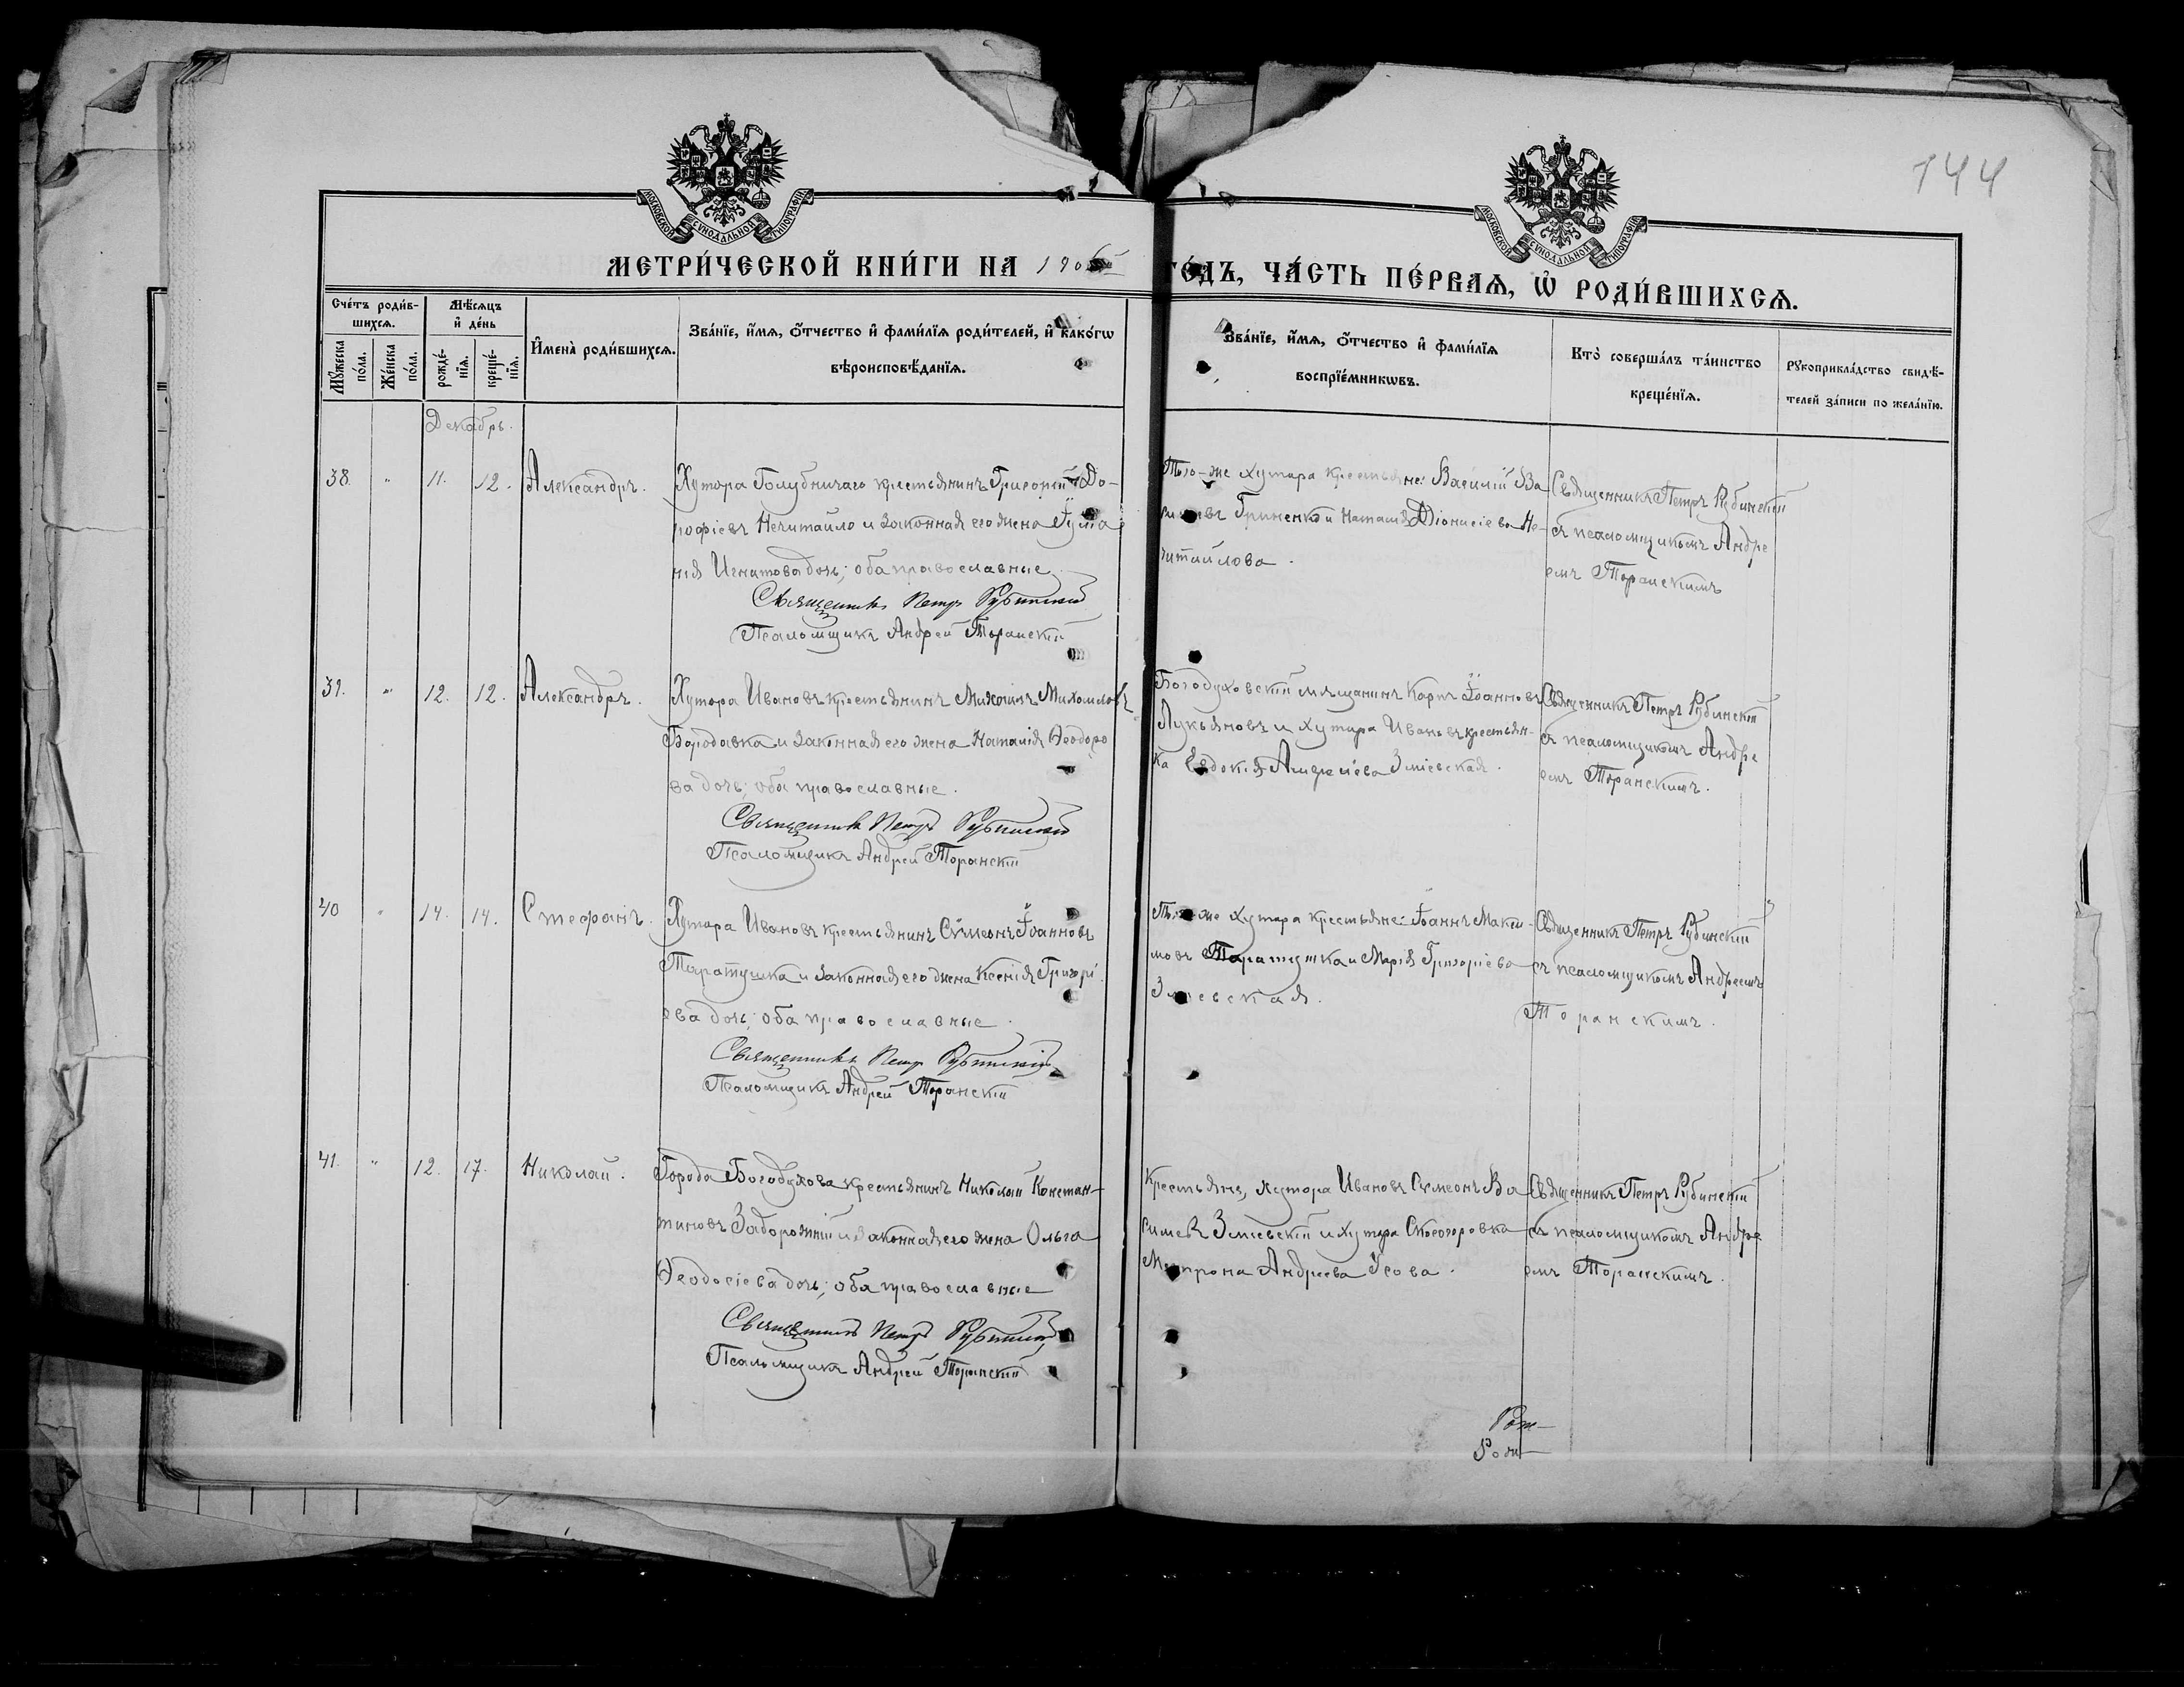 144
МОСКОВСКОЙ СѴНОДАЛЬНОЙ ТИПОГРАФІИ
МОСКОВСКОЙ СѴНОДАЛЬНОЙ ТИПОГРАФІИ
МЕТРИ́ЧЕСКОЙ КНИ́ГИ НА 190
ГО́ДЪ, ЧА́СТЬ ПЕ́РВАѦ, Ѡ҆ РОДИ́ВШИХСѦ.
Сче́тъ роди́в-
шихсѧ.
Мѣ́сѧцъ
и҆ де́нь
И҆мена̀ роди́вшихсѧ.
Зва́нїе, и҆́мѧ, ѻ҆́тчество и҆ фами́лїѧ роди́телей, и҆ како́гѡ
вѣроисповѣ́данїѧ.
Мꙋ́жеска
по́ла.
Же́нска
по́ла.
рожде́-
нїѧ.
креще́-
нїѧ.
Зва́нїе, и҆́мѧ, ѻ҆́тчество и҆ фами́лїѧ
воспрїе́мникѡвъ.
Кто̀ соверша́лъ та́инство
креще́нїѧ.
Рꙋкоприкла́дство свидѣ́-
телей за́писи по жела́нїю.
Декабрь.
38. " 11. 12. Александръ.
Хутора Голубничаго крестьянинъ Григорій До-
рофіевъ Нечитайло и законная его жена
нія Игнатова дочь; оба православные
Священникъ Петръ Рубинскій
Псаломщикъ Андрей Торанскій
Того-же хутора крестьяне: Василій Ва-
Гриненко и Наталія Діонисіева Не-
читайлова.
Священникъ Петръ Рубинскій
съ псаломщикомъ Андре
емъ Торанскимъ
39. " 12. 12. Александръ.
Хутора Ивановъ крестьянинъ Михаилъ Михаиловъ
Бородавка и законная его жена Наталія Ѳеодоро
ва дочь; оба православные.
Священникъ Петръ Рубинскій
Псаломщикъ Андрей Торанскій
Богодуховскій мѣщанинъ Карпъ Іоанновъ
Лукьяновъ и хутора Ивановъ крестьян-
ка Евдокія Змієвская.
Священникъ Петръ Рубинскій
съ псаломщикомъ Андре
емъ Торанскимъ.
40 " 14. 14. Стефанъ.
Хутора Ивановъ крестьянинъ Сѵмеонъ Іоанновъ
Таратушка и законная его жена Ксенія Григорі
ева дочь; оба православные.
Священникъ Петръ Рубинскій
Псаломщикъ Андрей Торанскій
Того же хутора крестьяне: Іоаннъ Макси-
мовъ Таратушка и Марія Григоріева
Зміевская.
Священникъ Петръ Рубинскій
съ псаломщикомъ Андреемъ
Торанскимъ.
41. " 12. 17. Николай.
Города Богодухова крестьянинъ Николай Констан-
тиновъ Задорожній и законная его жена Ольга
Ѳеодосіева дочь; оба православные
Священникъ Петръ Рубинскій
Псаломщикъ Андрей Торанскій
Крестьяне, хутора Ивановъ Сѵмеонъ Ва
Зміевскій и хутора
Матрона Андреева Усова.
Священникъ Петръ Рубинскій
съ псаломщикомъ Андре
емъ Торанскимъ.